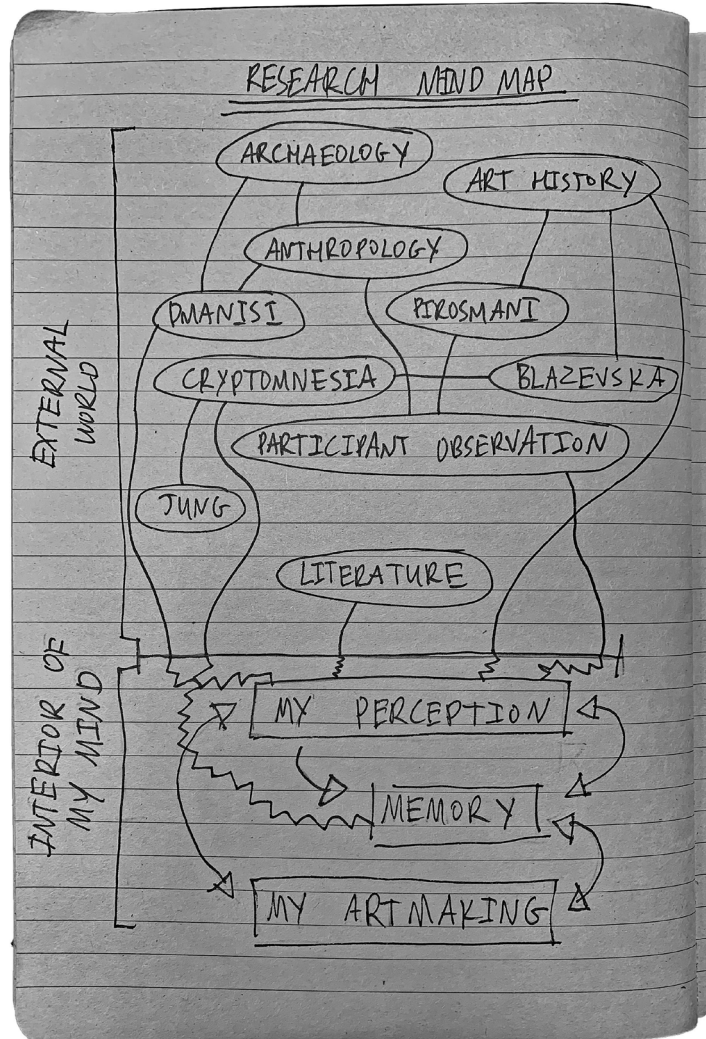 RESEARCH MIND MAP
ARCHAEOLOGY
ART HISTORY
ANTHROPOLOGY
DMANISI
PIROSMANI
CRYPTOMNESIA
BLAZEVSKA
PARTICIPANT OBSERVATION
JUNG
LITERATURE
EXTERNAL
WORLD
INTERIOR OF
MY MIND
MY PERCEPTION
MEMORY
MY ARTMAKING